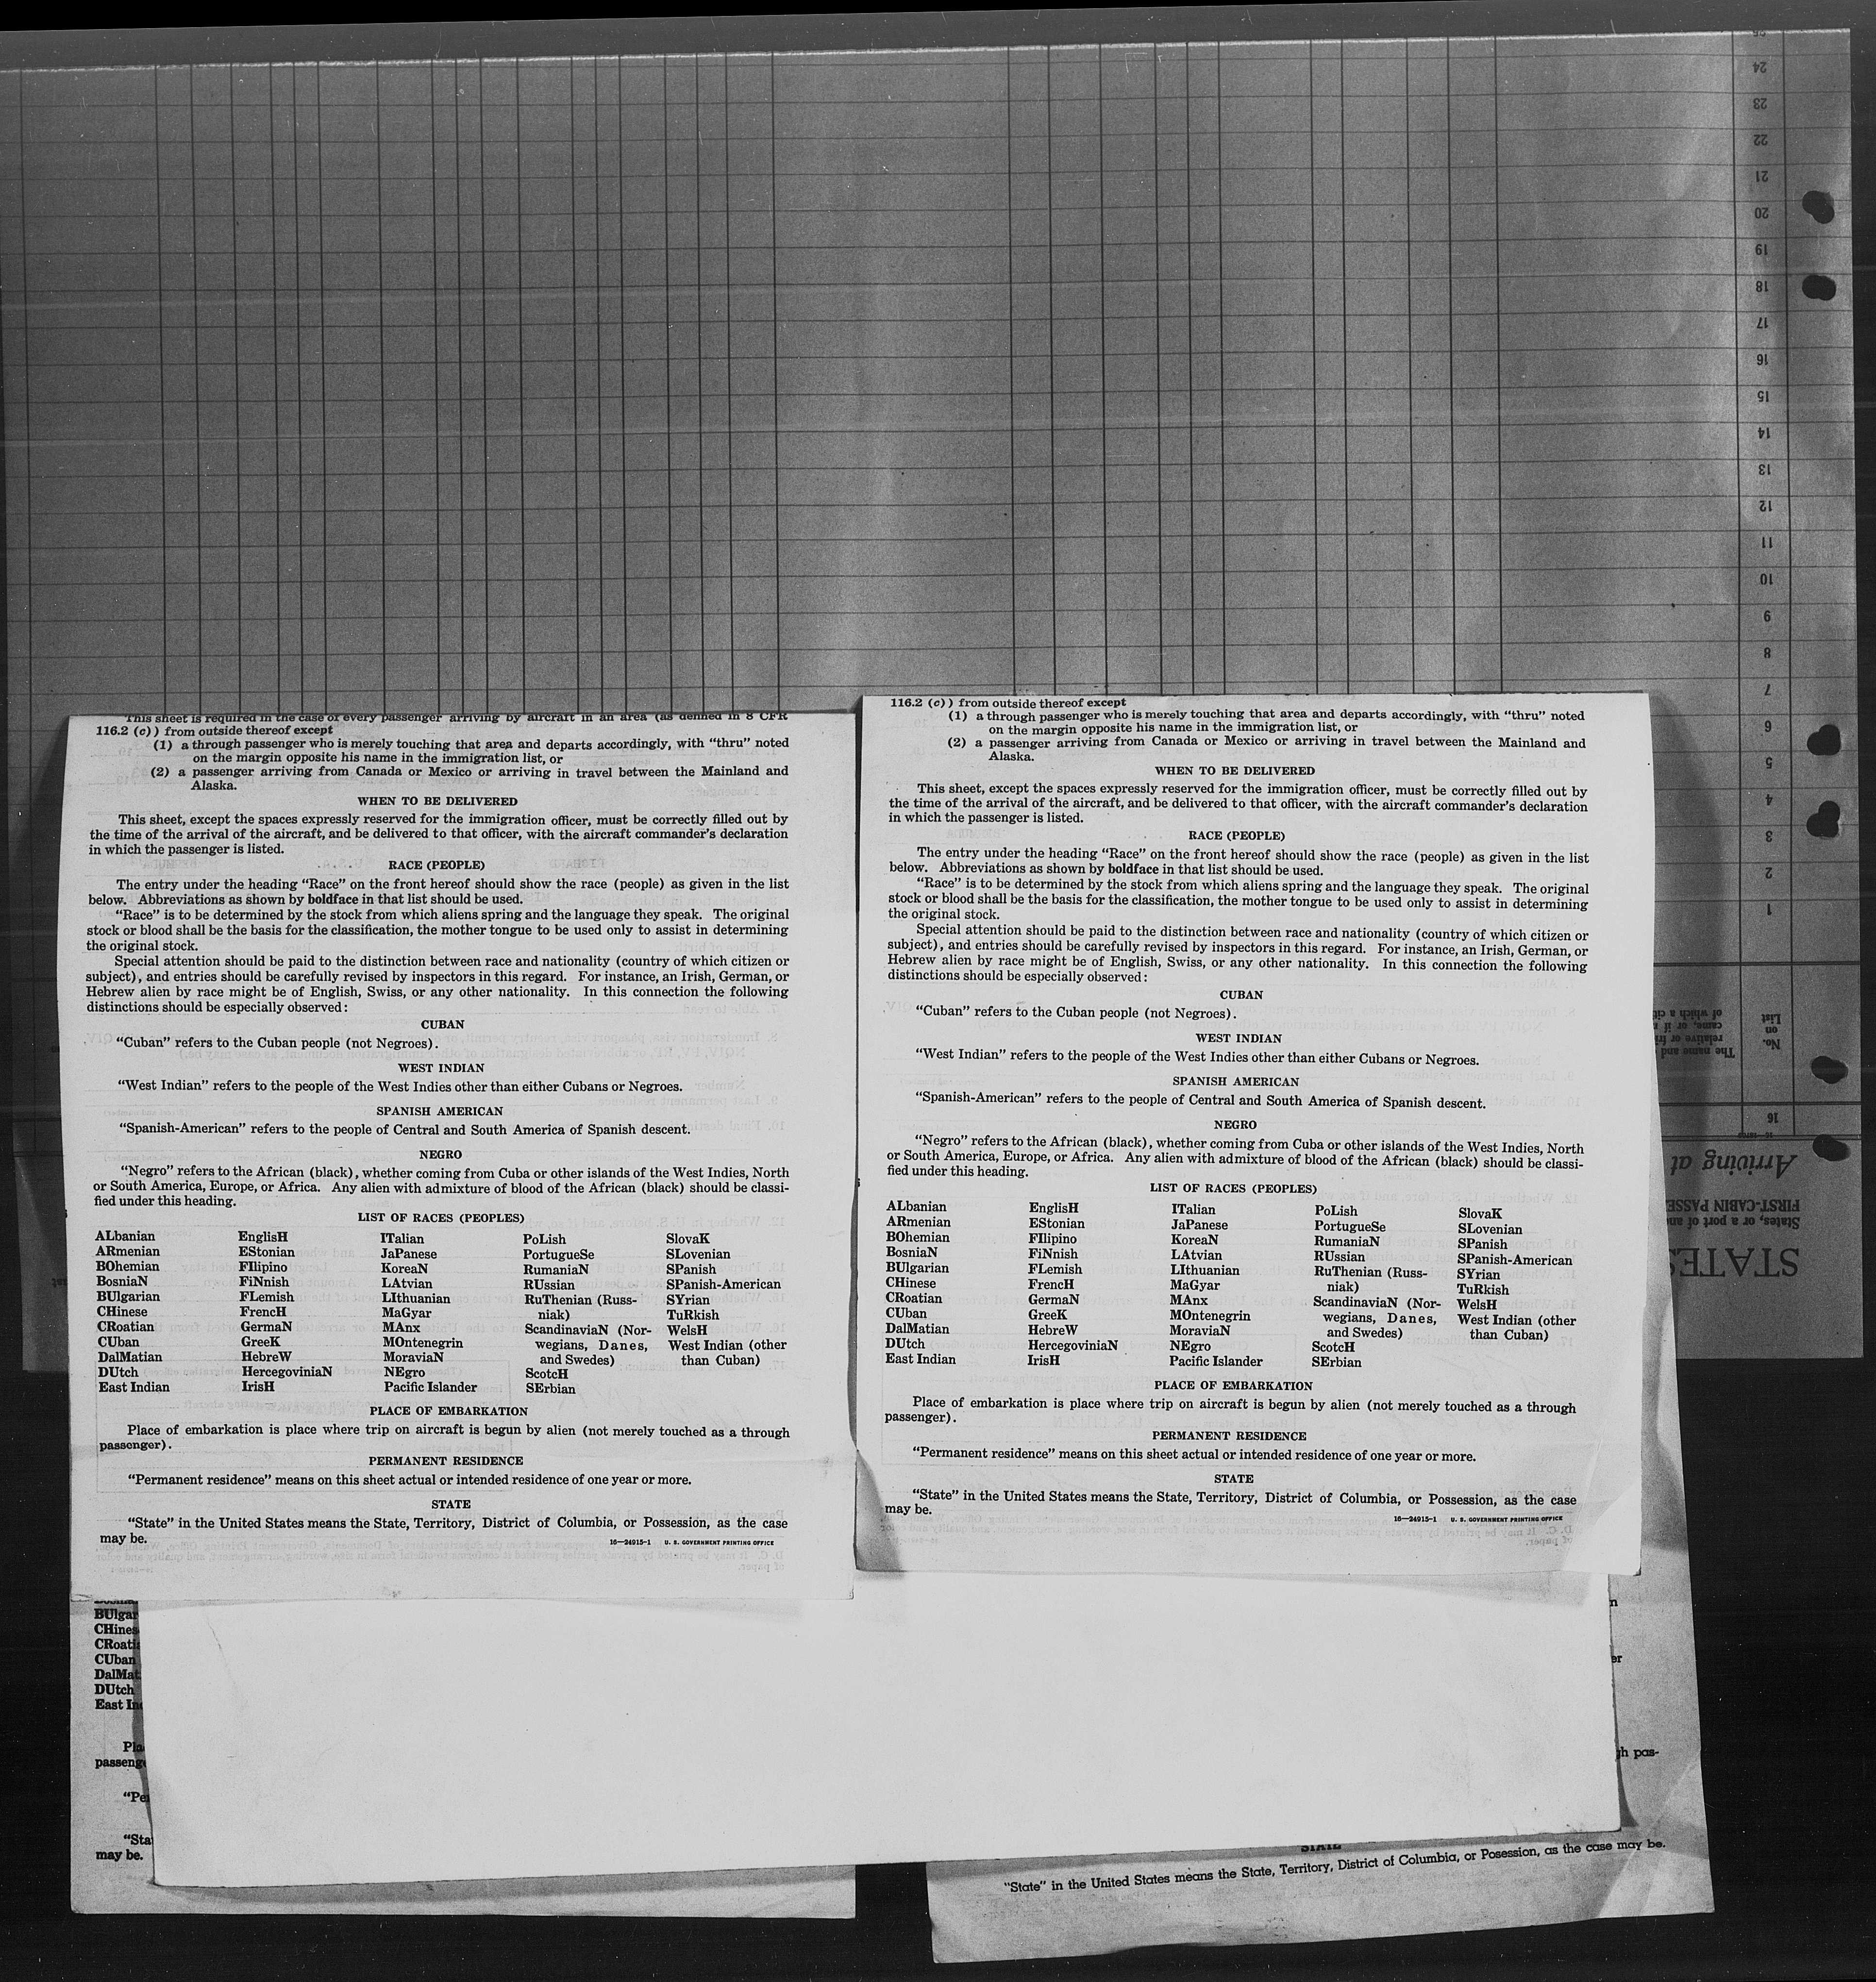 This sheet is required in the case of every passenger arriving by aircraft in an area (as defined in 8 CFR
116.2 (c)) from outside thereof except
(1) a through passenger who is merely touching that area and departs accordingly, with "thru" noted
on the margin opposite his name in the immigration list, or
(2) a passenger arriving from Canada or Mexico or arriving in travel between the Mainland and
Alaska.
WHEN TO BE DELIVERED
This sheet, except the spaces expressly reserved for the immigration officer, must be correctly filled out by
the time of the arrival of the aircraft, and be delivered to that officer, with the aircraft commander's declaration
in which the passenger is listed.
RACE (PEOPLE)
The entry under the heading "Race" on the front hereof should show the race (people) as given in the list
below. Abbreviations as shown by boldface in that list should be used.
"Race" is to be determined by the stock from which aliens spring and the language they speak. The original
stock or blood shall be the basis for the classification, the mother tongue to be used only to assist in determining
the original stock.
Special attention should be paid to the distinction between race and nationality (country of which citizen or
subject), and entries should be carefully revised by inspectors in this regard. For instance, an Irish, German, or
Hebrew alien by race might be of English, Swiss, or any other nationality. In this connection the following
distinctions should be especially observed:
CUBAN
"Cuban" refers to the Cuban people (not Negroes).
WEST INDIAN
"West Indian" refers to the people of the West Indies other than either Cubans or Negroes.
SPANISH AMERICAN
"Spanish-American" refers to the people of Central and South America of Spanish descent.
NEGRO
"Negro" refers to the African (black), whether coming from Cuba or other islands of the West Indies, North
or South America, Europe, or Africa. Any alien with admixture of blood of the African (black) should be classi-
fied under this heading.
LIST OF RACES (PEOPLES)
ALbanian
ARmenian
BOhemian
BosniaN
BUlgarian
CHinese
CRoatian
CUban
DalMatian
DUtch
East Indian
EnglisH
EStonian
FIlipino
FiNnish
FLemish
FrencH
GermaN
GreeK
HebreW
HercegoviniaN
IrisH
ITalian
JaPanese
KoreaN
LAtvian
LIthuanian
MaGyar
MAnx
MOntenegrin
MoraviaN
NEgro
Pacific Islander
PoLish
PortugueSe
RumaniaN
RUssian
RuThenian (Russ-
niak)
ScandinaviaN (Nor-
wegians, Danes,
and Swedes)
ScotcH
SErbian
SlovaK
SLovenian
SPanish
SPanish-American
SYrian
TuRkish
WelsH
West Indian (other
than Cuban)
PLACE OF EMBARKATION
Place of embarkation is place where trip on aircraft is begun by alien (not merely touched as a through
passenger).
PERMANENT RESIDENCE
"Permanent residence" means on this sheet actual or intended residence of one year or more.
STATE
"State" in the United States means the State, Territory, District of Columbia, or Possession, as the case
may be.
16—24915-1 U. S. GOVERNMENT PRINTING OFFICE
116.2 (c)) from outside thereof except
(1) a through passenger who is merely touching that area and departs accordingly, with "thru" noted
on the margin opposite his name in the immigration list, or
(2) a passenger arriving from Canada or Mexico or arriving in travel between the Mainland and
Alaska.
WHEN TO BE DELIVERED
This sheet, except the spaces expressly reserved for the immigration officer, must be correctly filled out by
the time of the arrival of the aircraft, and be delivered to that officer, with the aircraft commander's declaration
in which the passenger is listed.
RACE (PEOPLE)
The entry under the heading "Race" on the front hereof should show the race (people) as given in the list
below. Abbreviations as shown by boldface in that list should be used.
"Race" is to be determined by the stock from which aliens spring and the language they speak. The original
stock or blood shall be the basis for the classification, the mother tongue to be used only to assist in determining
the original stock.
Special attention should be paid to the distinction between race and nationality (country of which citizen or
subject), and entries should be carefully revised by inspectors in this regard. For instance, an Irish, German, or
Hebrew alien by race might be of English, Swiss, or any other nationality. In this connection the following
distinctions should be especially observed:
CUBAN
"Cuban" refers to the Cuban people (not Negroes).
WEST INDIAN
"West Indian" refers to the people of the West Indies other than either Cubans or Negroes.
SPANISH AMERICAN
"Spanish-American" refers to the people of Central and South America of Spanish descent.
NEGRO
"Negro" refers to the African (black), whether coming from Cuba or other islands of the West Indies, North
or South America, Europe, or Africa. Any alien with admixture of blood of the African (black) should be classi-
fied under this heading.
LIST OF RACES (PEOPLES)
ALbanian
ARmenian
BOhemian
BosniaN
BUlgarian
CHinese
CRoatian
CUban
DalMatian
DUtch
East Indian
EnglisH
EStonian
FIlipino
FiNnish
FLemish
FrencH
GermaN
GreeK
HebreW
HercegoviniaN
IrisH
ITalian
JaPanese
KoreaN
LAtvian
LIthuanian
MaGyar
MAnx
MOntenegrin
MoraviaN
NEgro
Pacific Islander
PoLish
PortugueSe
RumaniaN
RUssian
RuThenian (Russ-
niak)
ScandinaviaN (Nor-
wegians, Danes,
and Swedes)
ScotcH
SErbian
SlovaK
SLovenian
SPanish
SPanish-American
SYrian
TuRkish
WelsH
West Indian (other
than Cuban)
PLACE OF EMBARKATION
Place of embarkation is place where trip on aircraft is begun by alien (not merely touched as a through
passenger).
PERMANENT RESIDENCE
"Permanent residence" means on this sheet actual or intended residence of one year or more.
STATE
"State" in the United States means the State, Territory, District of Columbia, or Possession, as the case
may be.
16—24915-1 U. S. GOVERNMENT PRINTING OFFICE
24
23
22
21
20
19
18
17
16
15
14
13
12
11
10
9
8
7
6
5
4
3
2
1
No.
on
List
The name and
relative or fri
came, or if
of which a cit
16
Arriving at
FIRST-CABIN PASSE
States, or a port of an
STATES
BUlgar
CHines
CRoati
CUban
DalMat
DUtch
East In
Pla
passeng
"Pe
"Sta
may be.
gh pas-
STATE
"State" in the United States means the State, Territory, District of Columbia, or Posession, as the case may be.